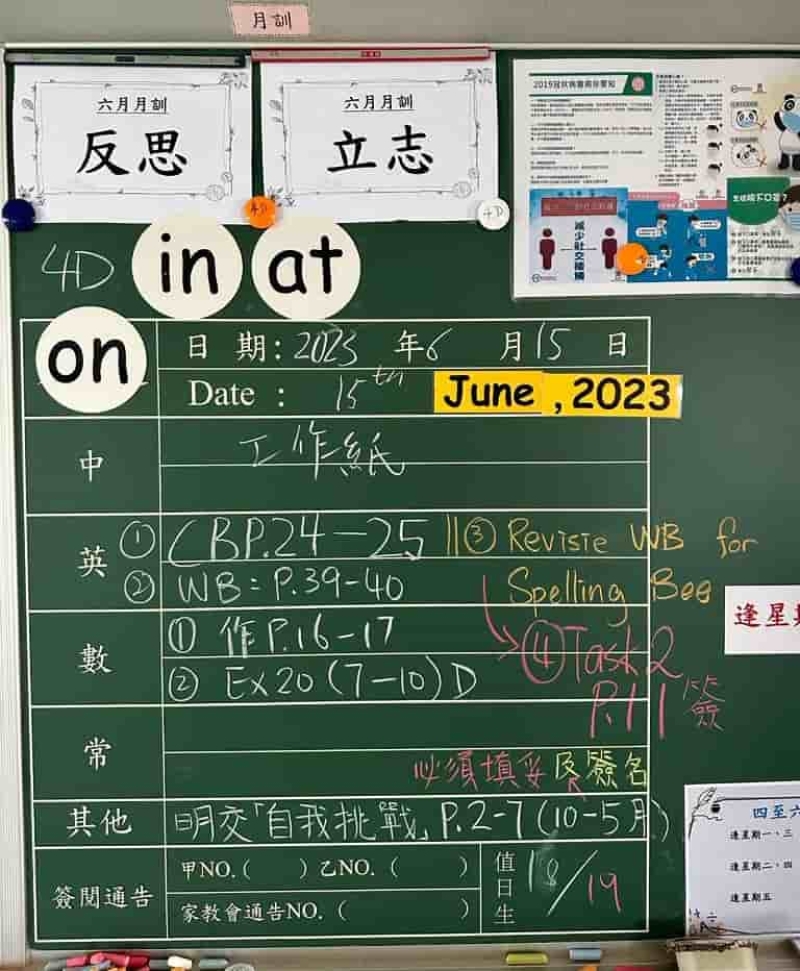 月訓
六月月訓
反思
六月月訓
立志
2019冠狀病毒病你要知
減少社交接觸
4D
4D in at
on
日 期: 2023 年6 月15 日
Date : 15th June, 2023
中 工作紙
英 ① CBP.24-25 ③ Revisie WB for
② WB: P.39-40 Spelling Bee
數 ① 作P.16-17 ④ Task 2
② Ex20 (7-10) D P.11 簽
常
必須填妥及簽名
其他 明交「自我挑戰」P.2-7 (10-5月)
簽閱通告 甲NO. ( ) 乙NO. ( )
家教會通告NO. ( )
值日生 18/19
逢星期
四至六
逢星期一、三
逢星期二、四
逢星期五